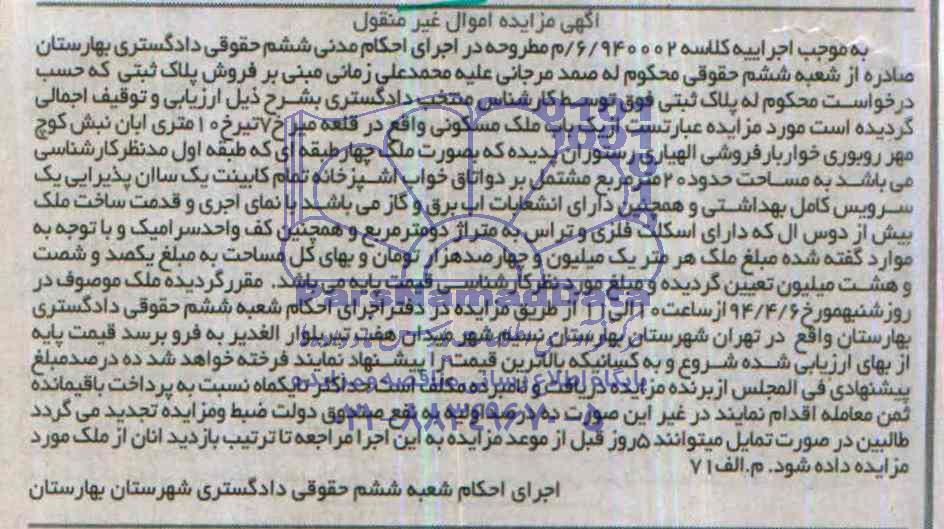 آگهی مزایده اموال غیر منقول
به موجب اجراییه کلاسه ۹۴۰۰۰۲/۶/م مطروحه در اجرای احکام مدنی ششم حقوقی دادگستری بهارستان
صادره از شعبه ششم حقوقی محکوم له صمد مرجانی علیه محمدعلی زمانی مبنی بر فروش پلاک ثبتی که حسب
درخواست محکوم له پلاک ثبتی فوق توسط کارشناس منتخب دادگستری بشرح ذیل ارزیابی و توقیف اجمالی
گردیده است مورد مزایده عبارتست ازیک باب ملک مسکونی واقع در قلعه میر خ۷تیرخ۱۰متری ابان نبش کوچ
مهر روبوری خواربارفروشی الهیاری رستوران پدیده که بصورت ملک چهارطبقه ای که طبقه اول مدنظرکارشناسی
می باشد به مساحت حدود۲۰مترمربع مشتمل بر دواتاق خواب اشپزخانه تمام کابینت یک ساان پذیرایی یک
سرویس کامل بهداشتی و همچنین دارای انشعابات اب برق و گاز می باشد با نمای اجری و قدمت ساخت ملک
بیش از دوس ال که دارای اسکلت فلزی و تراس به متراژ دومترمربع و همچنین کف واحدسرامیک و با توجه به
موارد گفته شده مبلغ ملک هر متر یک میلیون و چهارصدهزار تومان و بهای کل مساحت به مبلغ یکصد و شصت
و هشت میلیون تعیین گردیده و مبلغ مورد نظرکارشناسی قیمت پایه می باشد. مقررگردیده ملک موصوف در
روزشنبهمورخ۹۴/۴/۶ ازساعت۱۰الی۱۱ از طریق مزایده در دفتراجرای احکام شعبه ششم حقوقی دادگستری
بهارستان واقع در تهران شهرستان بهارستان نسیم شهر میدان هفت تیربلوار الغدیر به فرو برسد قیمت پایه
از بهای ارزیابی شده شروع و به کسیانیکه بالاترین قیمت را پیشنهاد نمایند فرخته خواهد شد ده درصدمبلغ
پیشنهادی فی المجلس ازبرنده مزایده دریافت و نامبرده مکلف است حداکثر تایکماه نسبت به پرداخت باقیمانده
ثمن معامله اقدام نمایند در غیر این صورت ده درصد اولیه به نفع صندوق دولت ضبط ومزایده تجدید می گردد
طالبین در صورت تمایل میتوانند ۵روز قبل از موعد مزایده به این اجرا مراجعه تا ترتیب بازدید انان از ملک مورد
مزایده داده شود. م.الف۷۱
اجرای احکام شعبه ششم حقوقی دادگستری شهرستان بهارستان
ParsNamadData
پایگاه اطلاع رسانی مناقصه و مزایده
۰۲۱-۸۸۳۴۹۶۷۰-۵